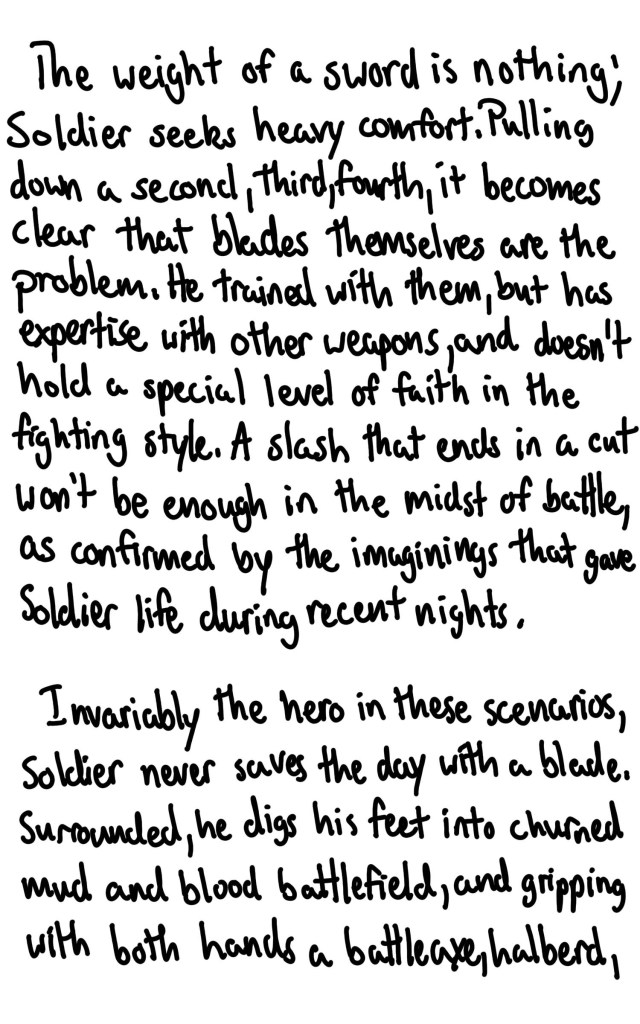 The weight of a sword is nothing;
Soldier seeks heavy comfort. Pulling
down a second, third, fourth, it becomes
clear that blades themselves are the
problem. He trained with them, but has
expertise with other weapons, and doesn't
hold a special level of faith in the
fighting style. A slash that ends in a cut
won't be enough in the midst of battle,
as confirmed by the imaginings that gave
Soldier life during recent nights.

Invariably the hero in these scenarios,
Soldier never saves the day with a blade.
Surrounded, he digs his feet into churned
mud and blood battlefield, and gripping
with both hands a battleaxe, halberd,